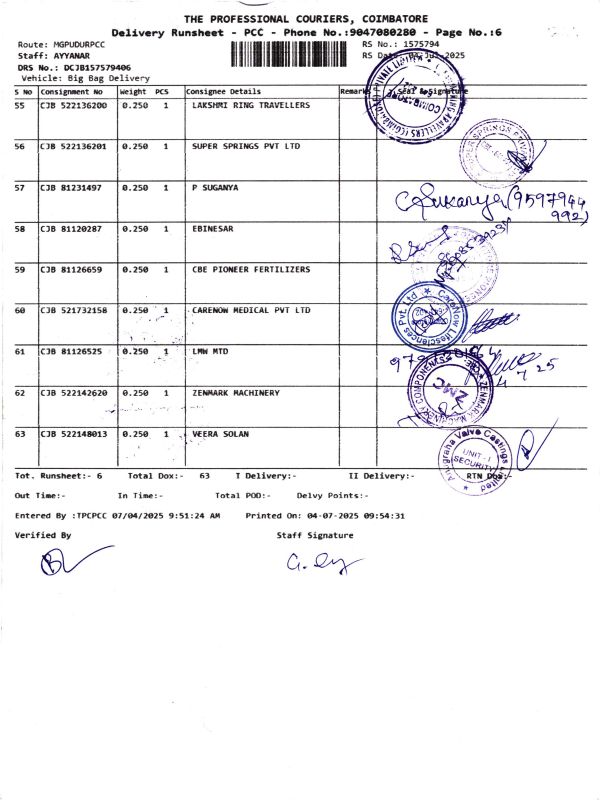 THE PROFESSIONAL COURIERS, COIMBATORE
Delivery Runsheet - PCC - Phone No.:9047080280 - Page No.:6
Route: MGPUDURPCC
RS No.: 1575794
Staff: AYYANAR
RS Date: 04-Jul-2025
DRS No.: DCJB157579406
Vehicle: Big Bag Delivery
S No Consignment No Weight PCS Consignee Details Remark Seal & Signature
55 CJB 522136200 0.250 1 LAKSHMI RING TRAVELLERS
56 CJB 522136201 0.250 1 SUPER SPRINGS PVT LTD
57 CJB 81231497 0.250 1 P SUGANYA
Sukanya (9597944
992)
58 CJB 81120287 0.250 1 EBINESAR
59 CJB 81126659 0.250 1 CBE PIONEER FERTILIZERS
60 CJB 521732158 0.250 1 CARENOW MEDICAL PVT LTD
CareNow Lifesciences Pvt. Ltd
61 CJB 81126525 0.250 1 LMW MTD
4 7 25
62 CJB 522142620 0.250 1 ZENMARK MACHINERY
ZENMARK MACHINERY COMPONENTS
ZMC
63 CJB 522148013 0.250 1 VEERA SOLAN
Anugraha Valve Castings Limited
UNIT-I
SECURITY
Tot. Runsheet:- 6 Total Dox:- 63 T Delivery:- II Delivery:- RTN Dox:-
Out Time:- In Time:- Total POD:- Delvy Points:-
Entered By :TPCPCC 07/04/2025 9:51:24 AM Printed On: 04-07-2025 09:54:31
Verified By Staff Signature